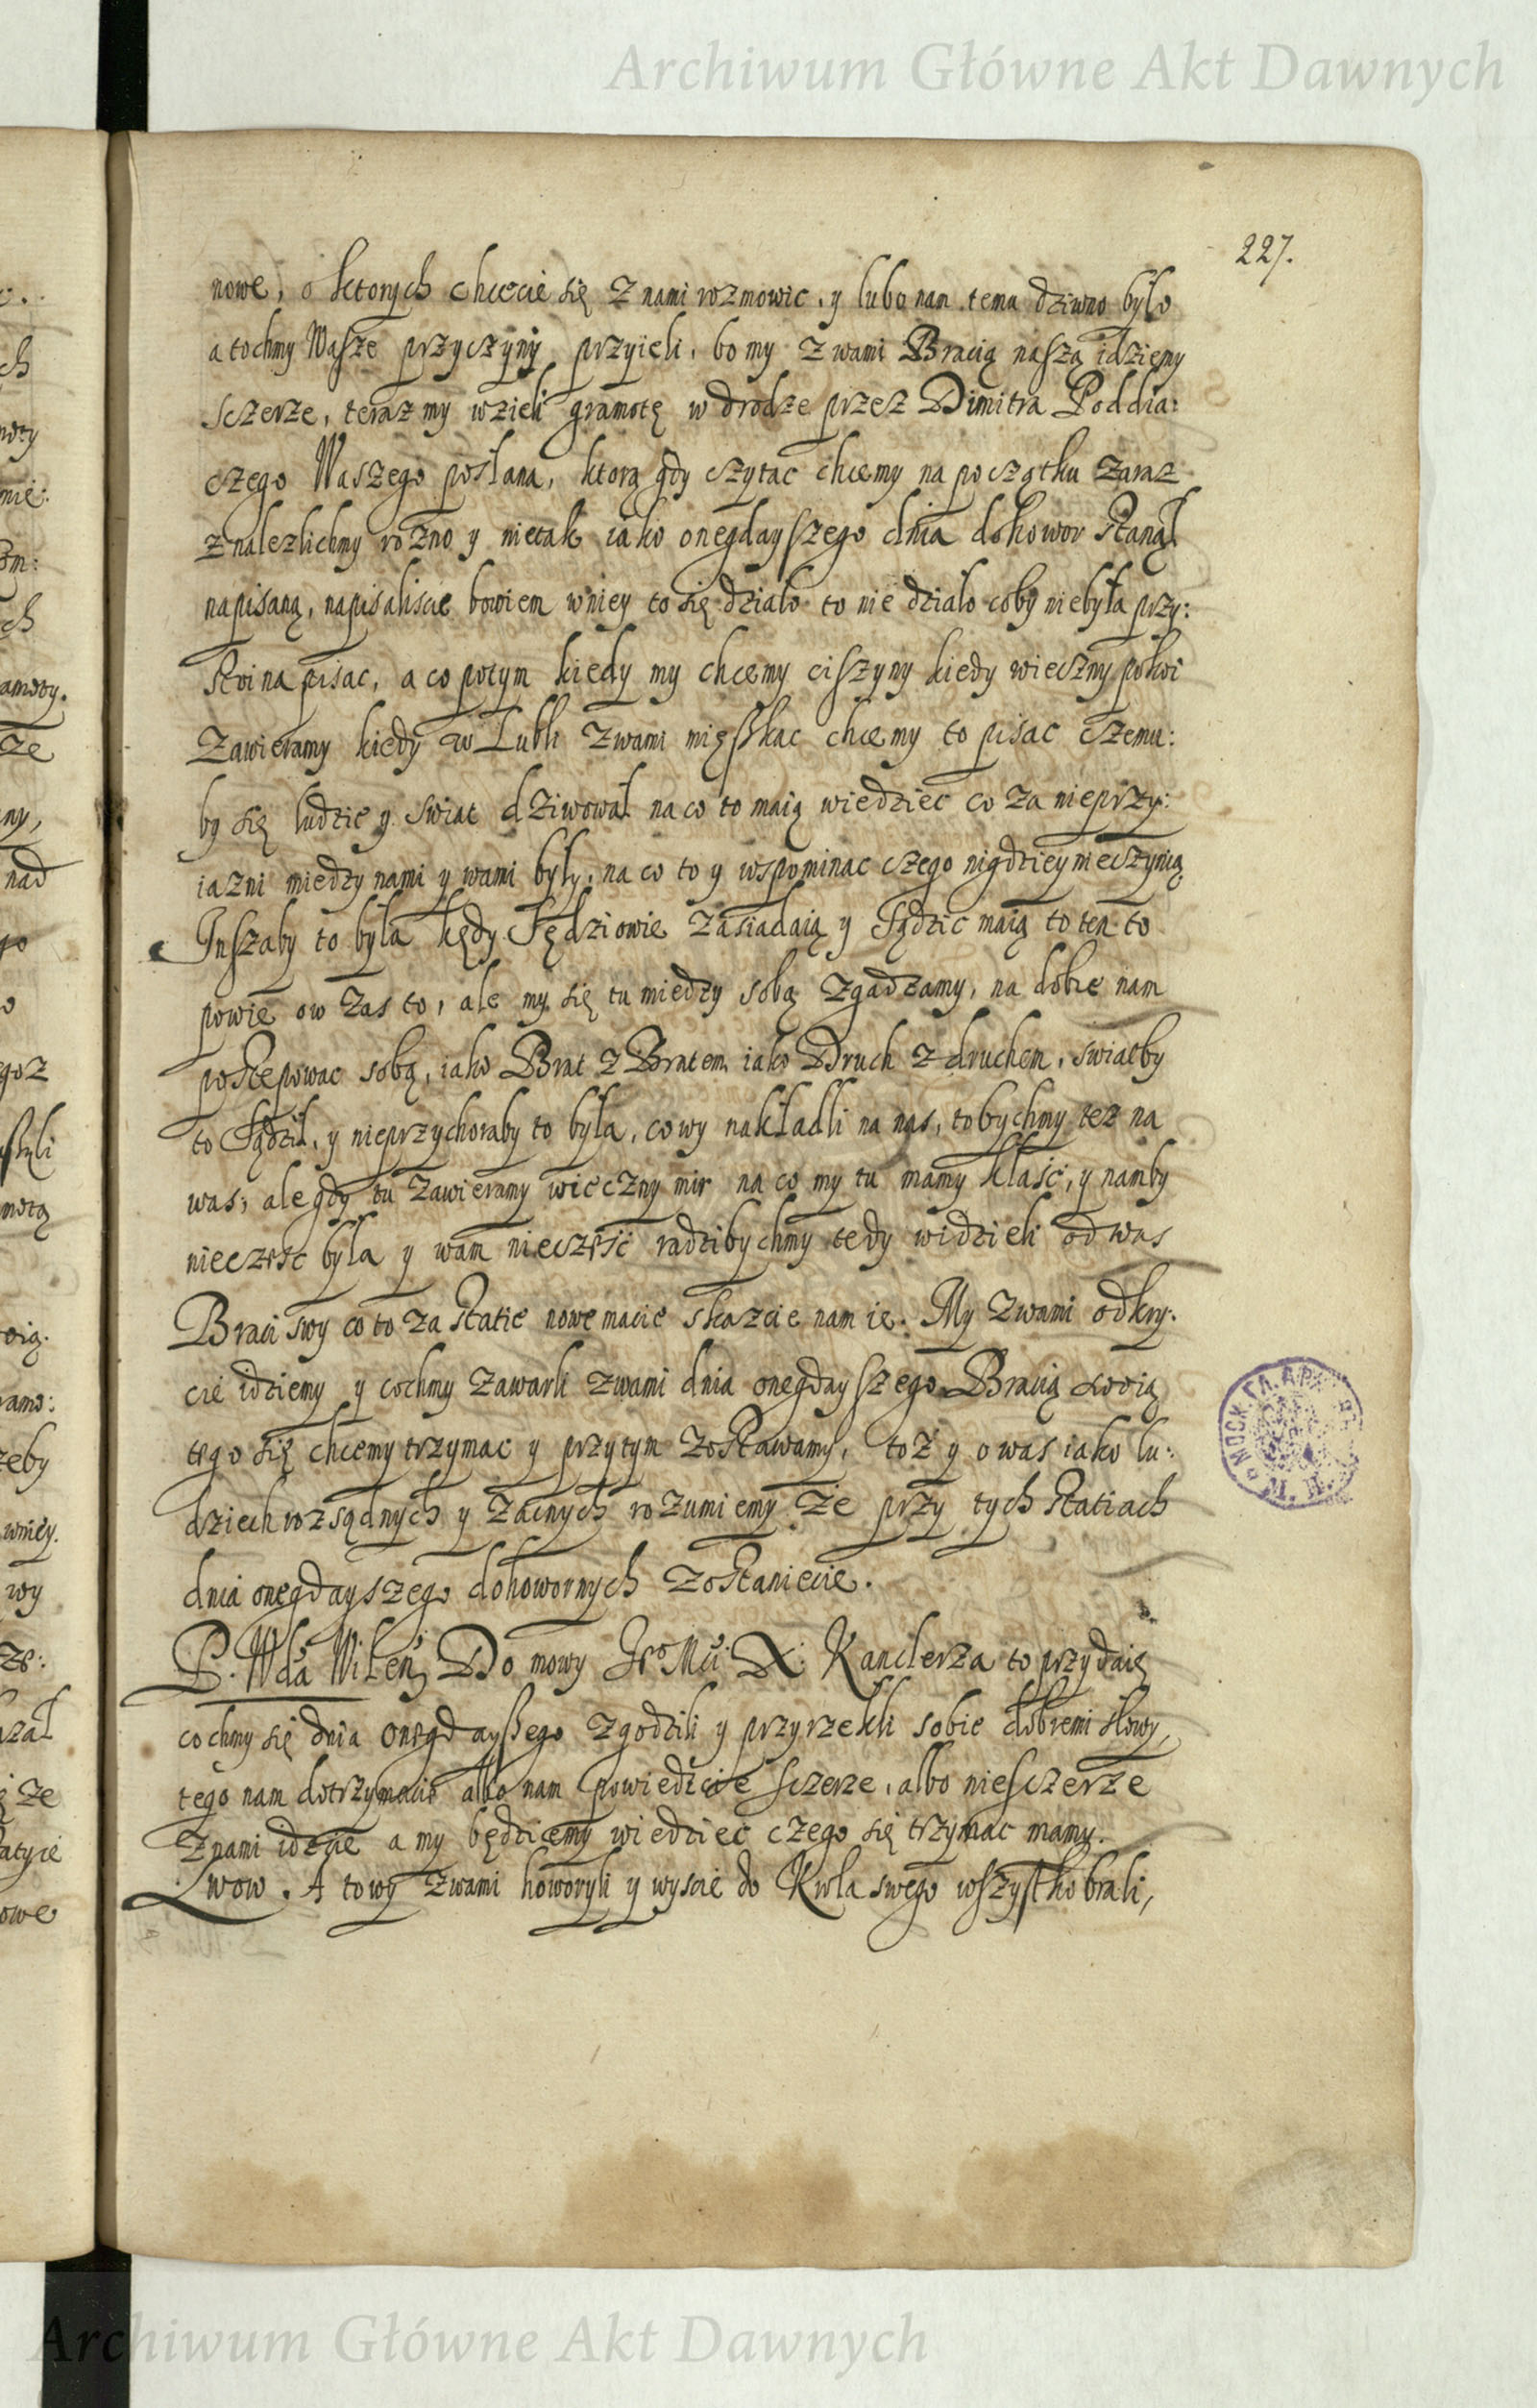 Archiwum Główne Akt Dawnych
227.
nowe, o ktorych chcecie się z nami rozmowic, y lubo nam temu dziwno było
a tochmy Wasze przyczyny przyieli, bo my z wami Bracią naszą idziemy
sczerze, teraz my wzieli gramotę w drodze przez Dimitra Poddia:
czego Waszego posłaną, ktorą gdy czytac chcemy na początku zaraz
znalezlichmy rozno y nietak iako onegdayszego dnia dohowor stanął
napisaną, napisaliscie bowiem w niey to się działo to nie działo coby niebyła przy:
stoina pisac, a co potym kiedy my chcemy ciszyny kiedy wieczny pokoi
zawieramy kiedy w Lubli z wami mięszkac chcemy to pisac czemu:
by się ludzie y swiat dziwował na co to maią wiedziec co za nieprzy:
iazni miedzy nami y wami były, na co to y wspominac czego nigdziey nieczynią
Inszaby to była kędy Sędziowie zasiadaią y Sądzic maią to ten to
powie ow zas to, ale my się tu miedzy sobą zgadzamy, na dobre nam
postepowac sobą, iako Brat z Bratem iako Druch z druchem, swiatby
to Sądził, y nieprzychoraby to była, co wy nakładli na nas, tobychmy tez na
was, ale gdy tu zawieramy wieczny mir na co my tu mamy kłaść, y namby
nieczesc była y wam nieczesć radzibychmy tedy widzieli od was
Braci swy co to za statie nowe macie skazcie nam ie. My z wami odkry:
cie idziemy y cochmy zawarli z wami dnia onegdayszego Bracią swoią
tego się chcemy trzymac y przy tym zostawamy, toż y o was iako lu:
dziech rozsądnych y zacnych rozumiemy że przy tych statiach
dnia onegdayszego dohowornych zostaniecie.
P. Wda Wileń, Do mowy Jeo Mci X. Kanclerza to przydaię
cochmy się dnia onegdayszego zgodzili y przyrzekli sobie dobremi słowy,
tego nam dotrzymacie albo nam powiedzcie sczerze, albo niesczerze
z nami idzcie a my będziemy wiedziec czego się trzymac mamy.
Lwow. A to wy z wami howoryli y wyscie do Krola swego wszystko brali,
Archiwum Główne Akt Dawnych